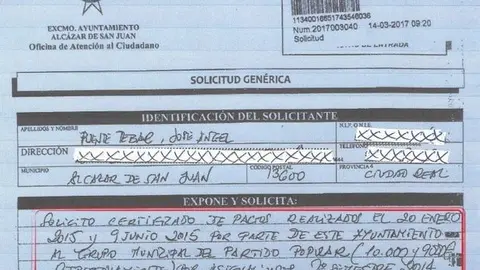 EXCMO. AYUNTAMIENTO
ALCÁZAR DE SAN JUAN
Oficina de Atención al Ciudadano
11340016651743546036
Num.2017003040 14-03-2017 09:20
Solicitud
DE ENTRADA
SOLICITUD GENÉRICA
IDENTIFICACIÓN DEL SOLICITANTE
APELLIDOS Y NOMBRE
PUENTE TEBAR, JOSÉ ANGEL
N.I.F. O N.I.E.
XXXXXXXXXX
DIRECCIÓN
XXXXXXXXXXXXXXXXXXXXXX
TELÉFONO
XXXXXXXXXX
MUNICIPIO
ALCAZAR DE SAN JUAN
CÓDIGO POSTAL
13600
PROVINCIA
CIUDAD REAL
EXPONE Y SOLICITA:
SOLICITO CERTIFICADO DE PAGOS REALIZADOS EL 20 ENERO
2015 Y 9 JUNIO 2015 POR PARTE DE ESTE AYUNTAMIENTO
AL GRUPO MUNICIPAL DEL PARTIDO POPULAR (10.000 y
POR